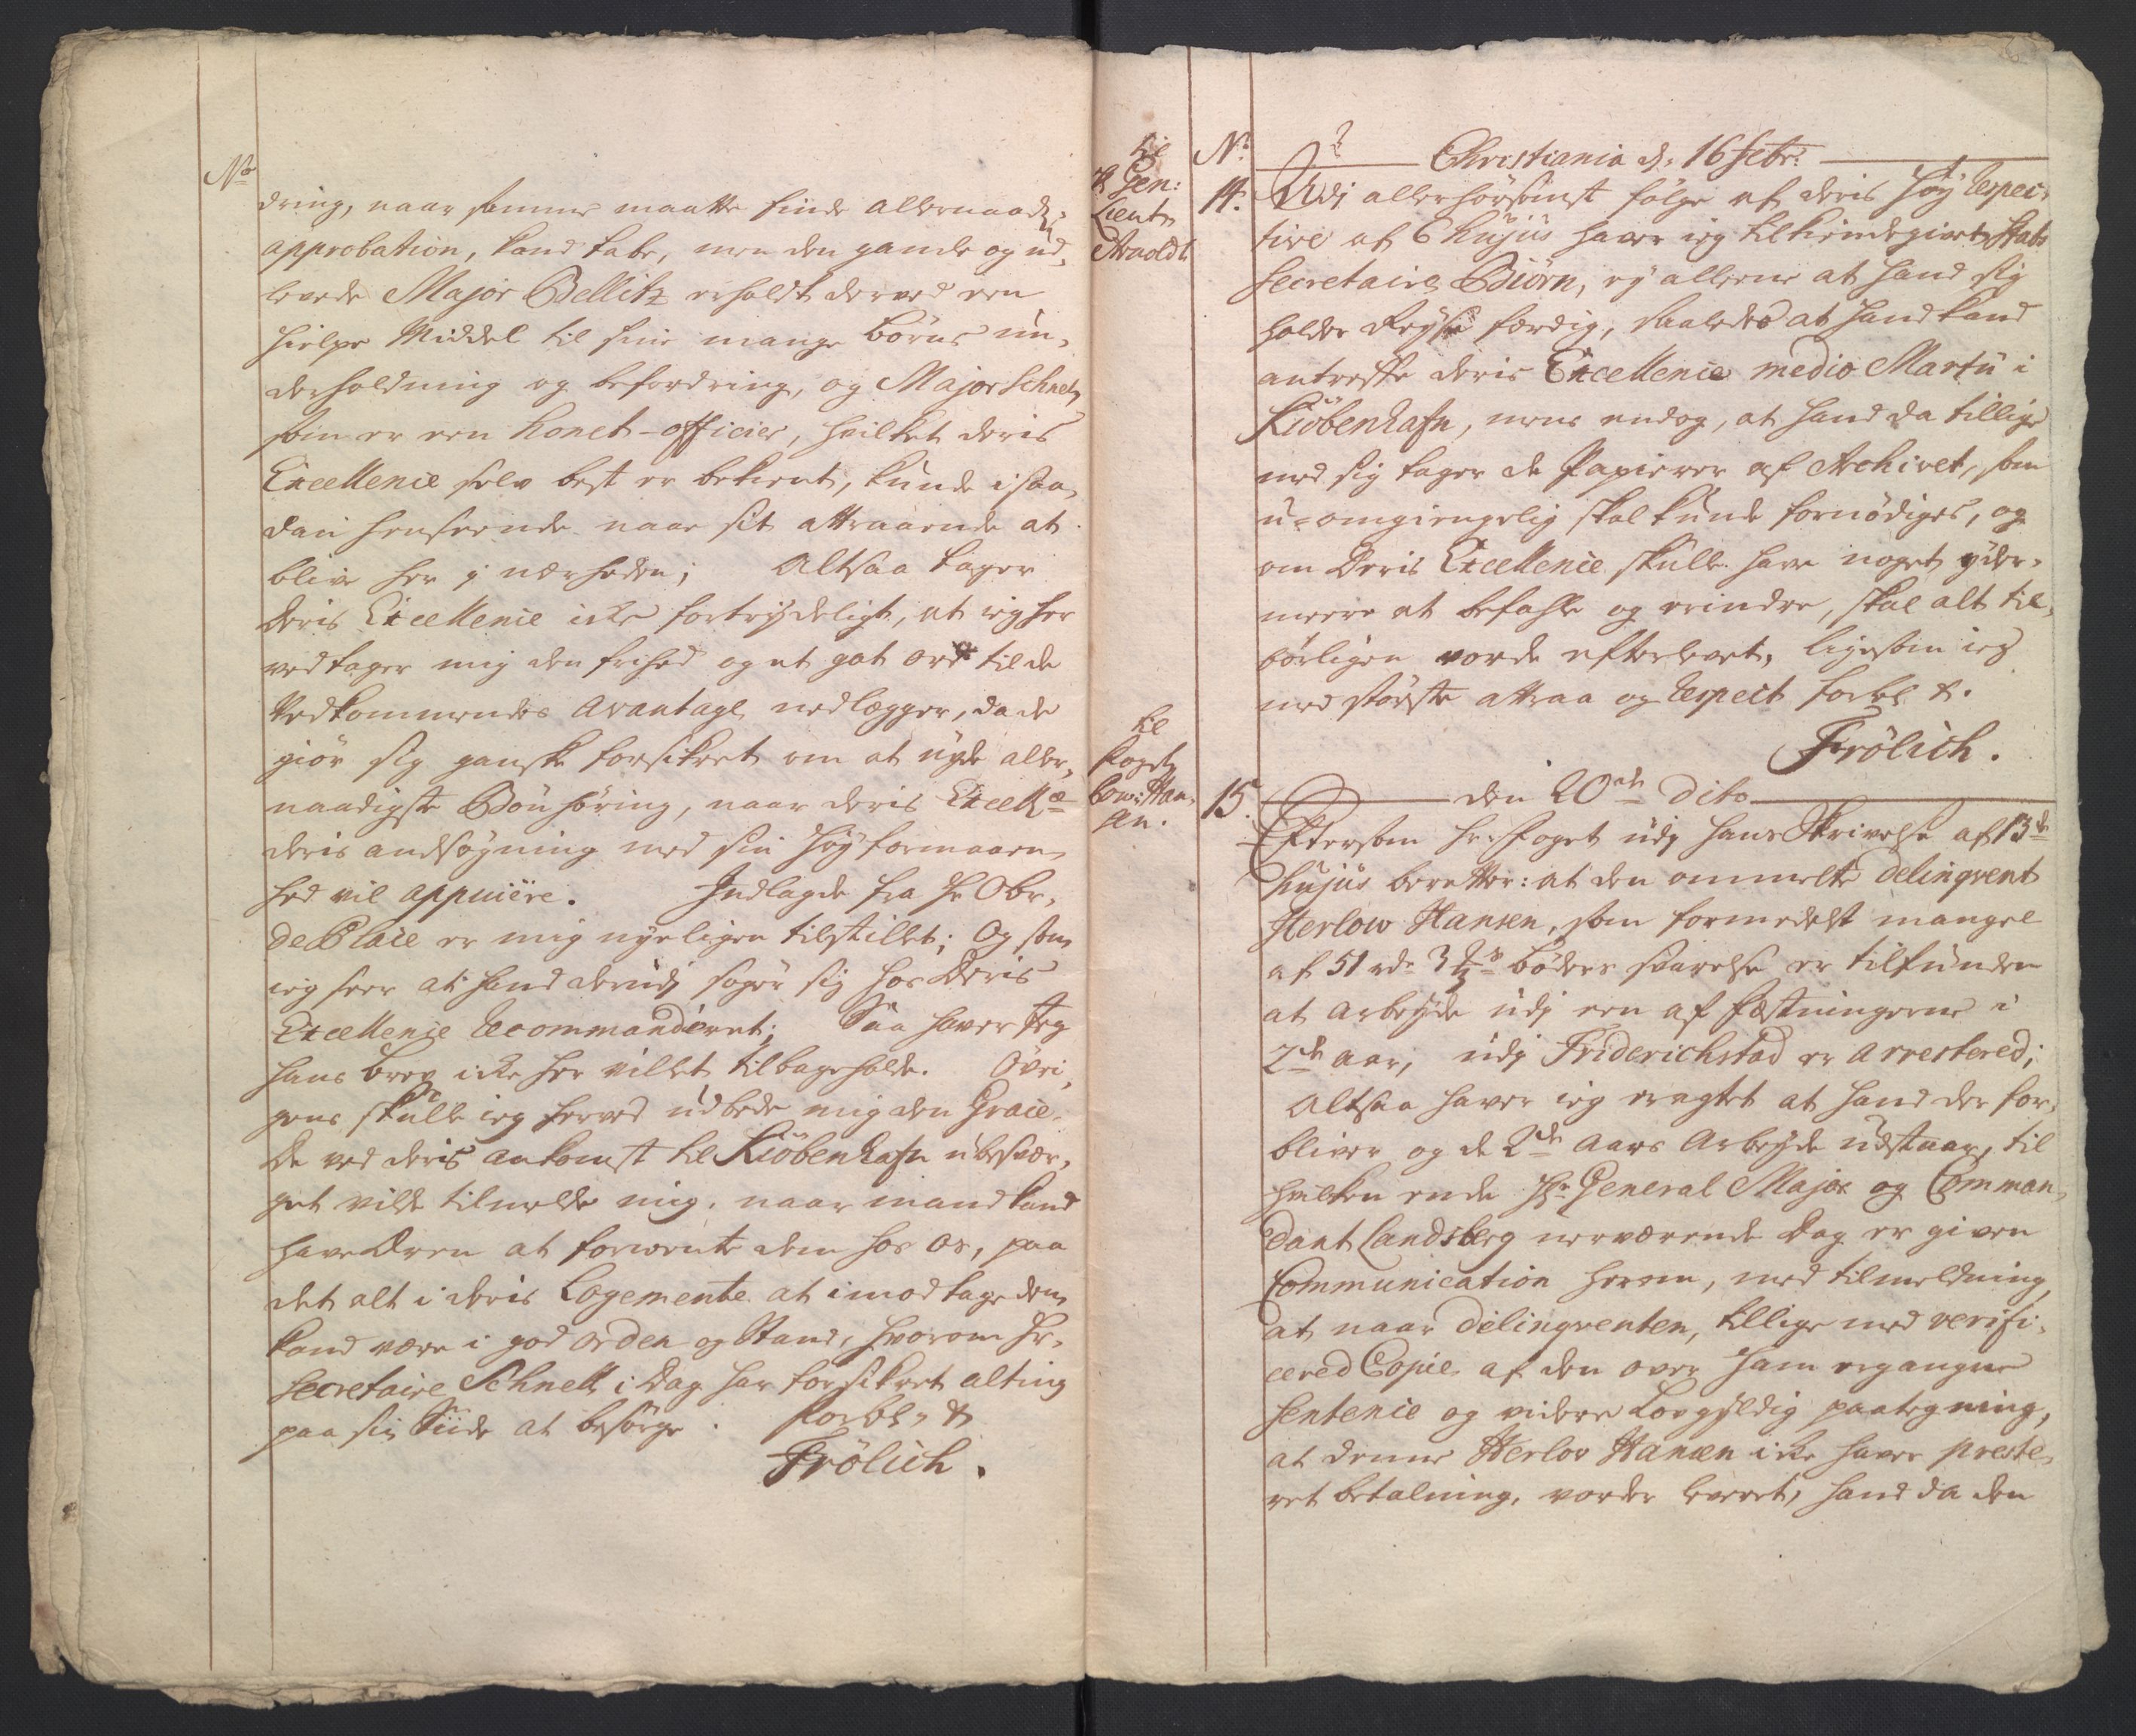 No
dring, naar samme maatte finde allernaads:
approbation, kand tabe, men den gamle og ud,
levede Major Bellitz erholdt derved een
hielpe Middel til sine mange börns un,
derholdning og befordring, og Major Schnell
som er een honet-officier, hvilket deris
Excellence selv best er bekient, kunde i saa,
dan henseende naae sit attraaende at
blive her i nærheden; Altsaa tager
Deris Excellence icke fortrydeligt, at ieg her
ved tager mig den frihed og et got ord til de
Vedkommendes avantage nedlegger, da de
giör sig ganske forsikret om at nyde aller,
naadigste Bönhöring, naar deris Excellce
deris andsögning med sin höyformaaen,
hed vil appuiere. Indlagde fra Hr Obr,
de Place er mig nyeligen tilstillet; Og som
ieg seer at hand derudj söger sig hos Deris
Excellence Recommanderet; Saa haver Jeg
hans brev icke her villet tilbageholde. Övri,
gens skulle ieg herved udbede mig den Grace
De ved deris ankomst til Kiöbenhafn ubesvær,
get vilde tilmelde mig, naar mand kand
have Æren at forvente dem hos os, paa
det alt i deris Logemente at imodtage dem
kand være i god orden og Stand, hvorom Hr,
Secretaire Schnell i Dag har forsikret alting
paa sin Siide at besörge. Forbl: &
Frölich.
til
Gen:
Lieutn
Arnoldt
No
Christiania d. 16 Febr:
14. Udj allerhörsomst fölge af deris höy Respec,
tive af 6 hujus haver ieg tilkiendegivet Stabs
Secretaire Biörn, ey allene at hand sig
holder Reyse færdig, saaledes at hand kand
antreffe deris Excellence medio Martii i
Kiöbenhafn, mens endog, at hand da tillige
med sig tager de Papierer af Archivet, som
u-omgiengelig skal kunde fornödiges, og
om Deris Excellence skulle have noget yder,
meere at befahle og erindre, skal alt til,
börligen vorde efterlevet, ligesom ieg
med störste attraa og Respect forbl &.
Frölich.
til
Foget
Cow: Han,
sen.
15. den 20de Dito
Eftersom Hr Foget udj hans Skrivelse af 13de
hujus beretter: at den ommelte Delinqvent
Herlow Hansen, som formedelst mangel
af 51 rdr 3 böders svarelse er tilfunden
at arbeyde udj een af fæstningerne i
2de aar, udj Friderichstad er arrestered;
Altsaa haver ieg eragtet at hand der for,
bliver og de 2de aars arbeyde udstaar, til
hvilken ende Hr General Major og Comman,
dant Landsberg nerværende Dag er given
Communication herom, med tilmeldning,
at naar delinqventen, tillige med verifi,
cered Copie af den over ham ergangne
Sentence og videre Lovgyldig paategning,
at denne Herlov Hansen icke haver preste,
ret betalning, vorder leveret, hand da den